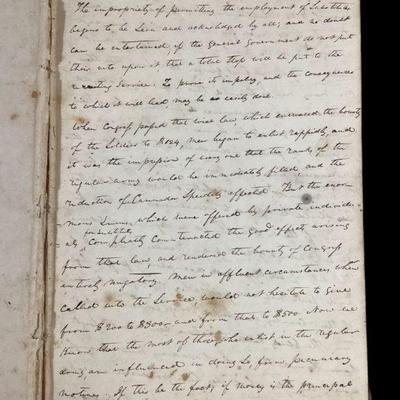 The impropriety of permitting the employment of Substitutes
begins to be seen and acknowledged by all; and no doubt
can be entertained, if the General Government do not put
their veto upon it that a total stop will be put to the
recruiting Service. To prove its impolicy and the consequences
to which it will lead may be easily done.
When Congress passed that wise law, which encreased the bounty
of the Soldier to $124, men began to enlist rappidly, and
it was the impression of every one that the ranks of the
regular army would be immediately filled, and the
reduction of Cannada Speedily effected. But the enor
mous Sums, which were offered by private individu-
als for substitutes Completely Counteracted the good effects arising
from that law, and rendered the bounty of Congress
entirely nugatory. Men in affluent circumstances when
called into the Service, would not hesitate to give
from $200 to $300 and from that to $500 Now we
know, that the most of those who enlist in the regular
army are influenced in doing so from pecuniary
motives. If this be the fact; if money is the principal